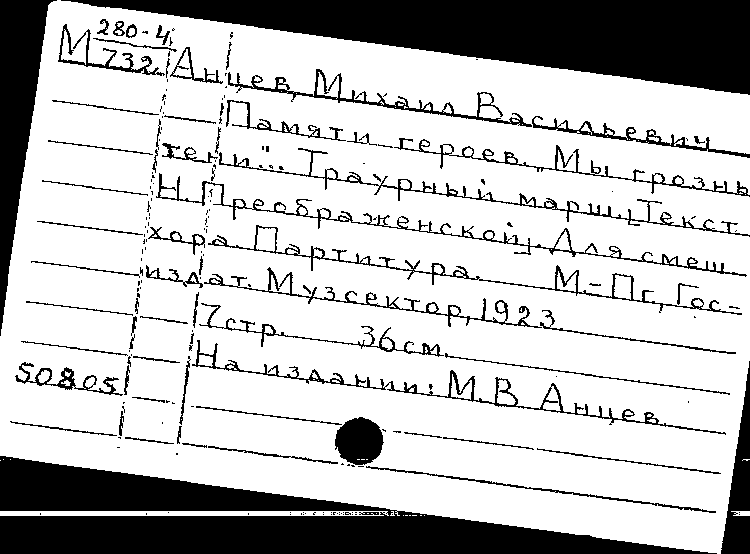 М 280-4
732. Анцев, Михаил Васильевич
Памяти героев. „Мы грозны
тени"... Траурный марш. [Текст
Н. Преображенской]. Для смеш.
хора. Партитура. М.-Пг, Гос=
издат. Музсектор, 1923.
7 стр. 36 см.
На издании: М.В Анцев.
50805